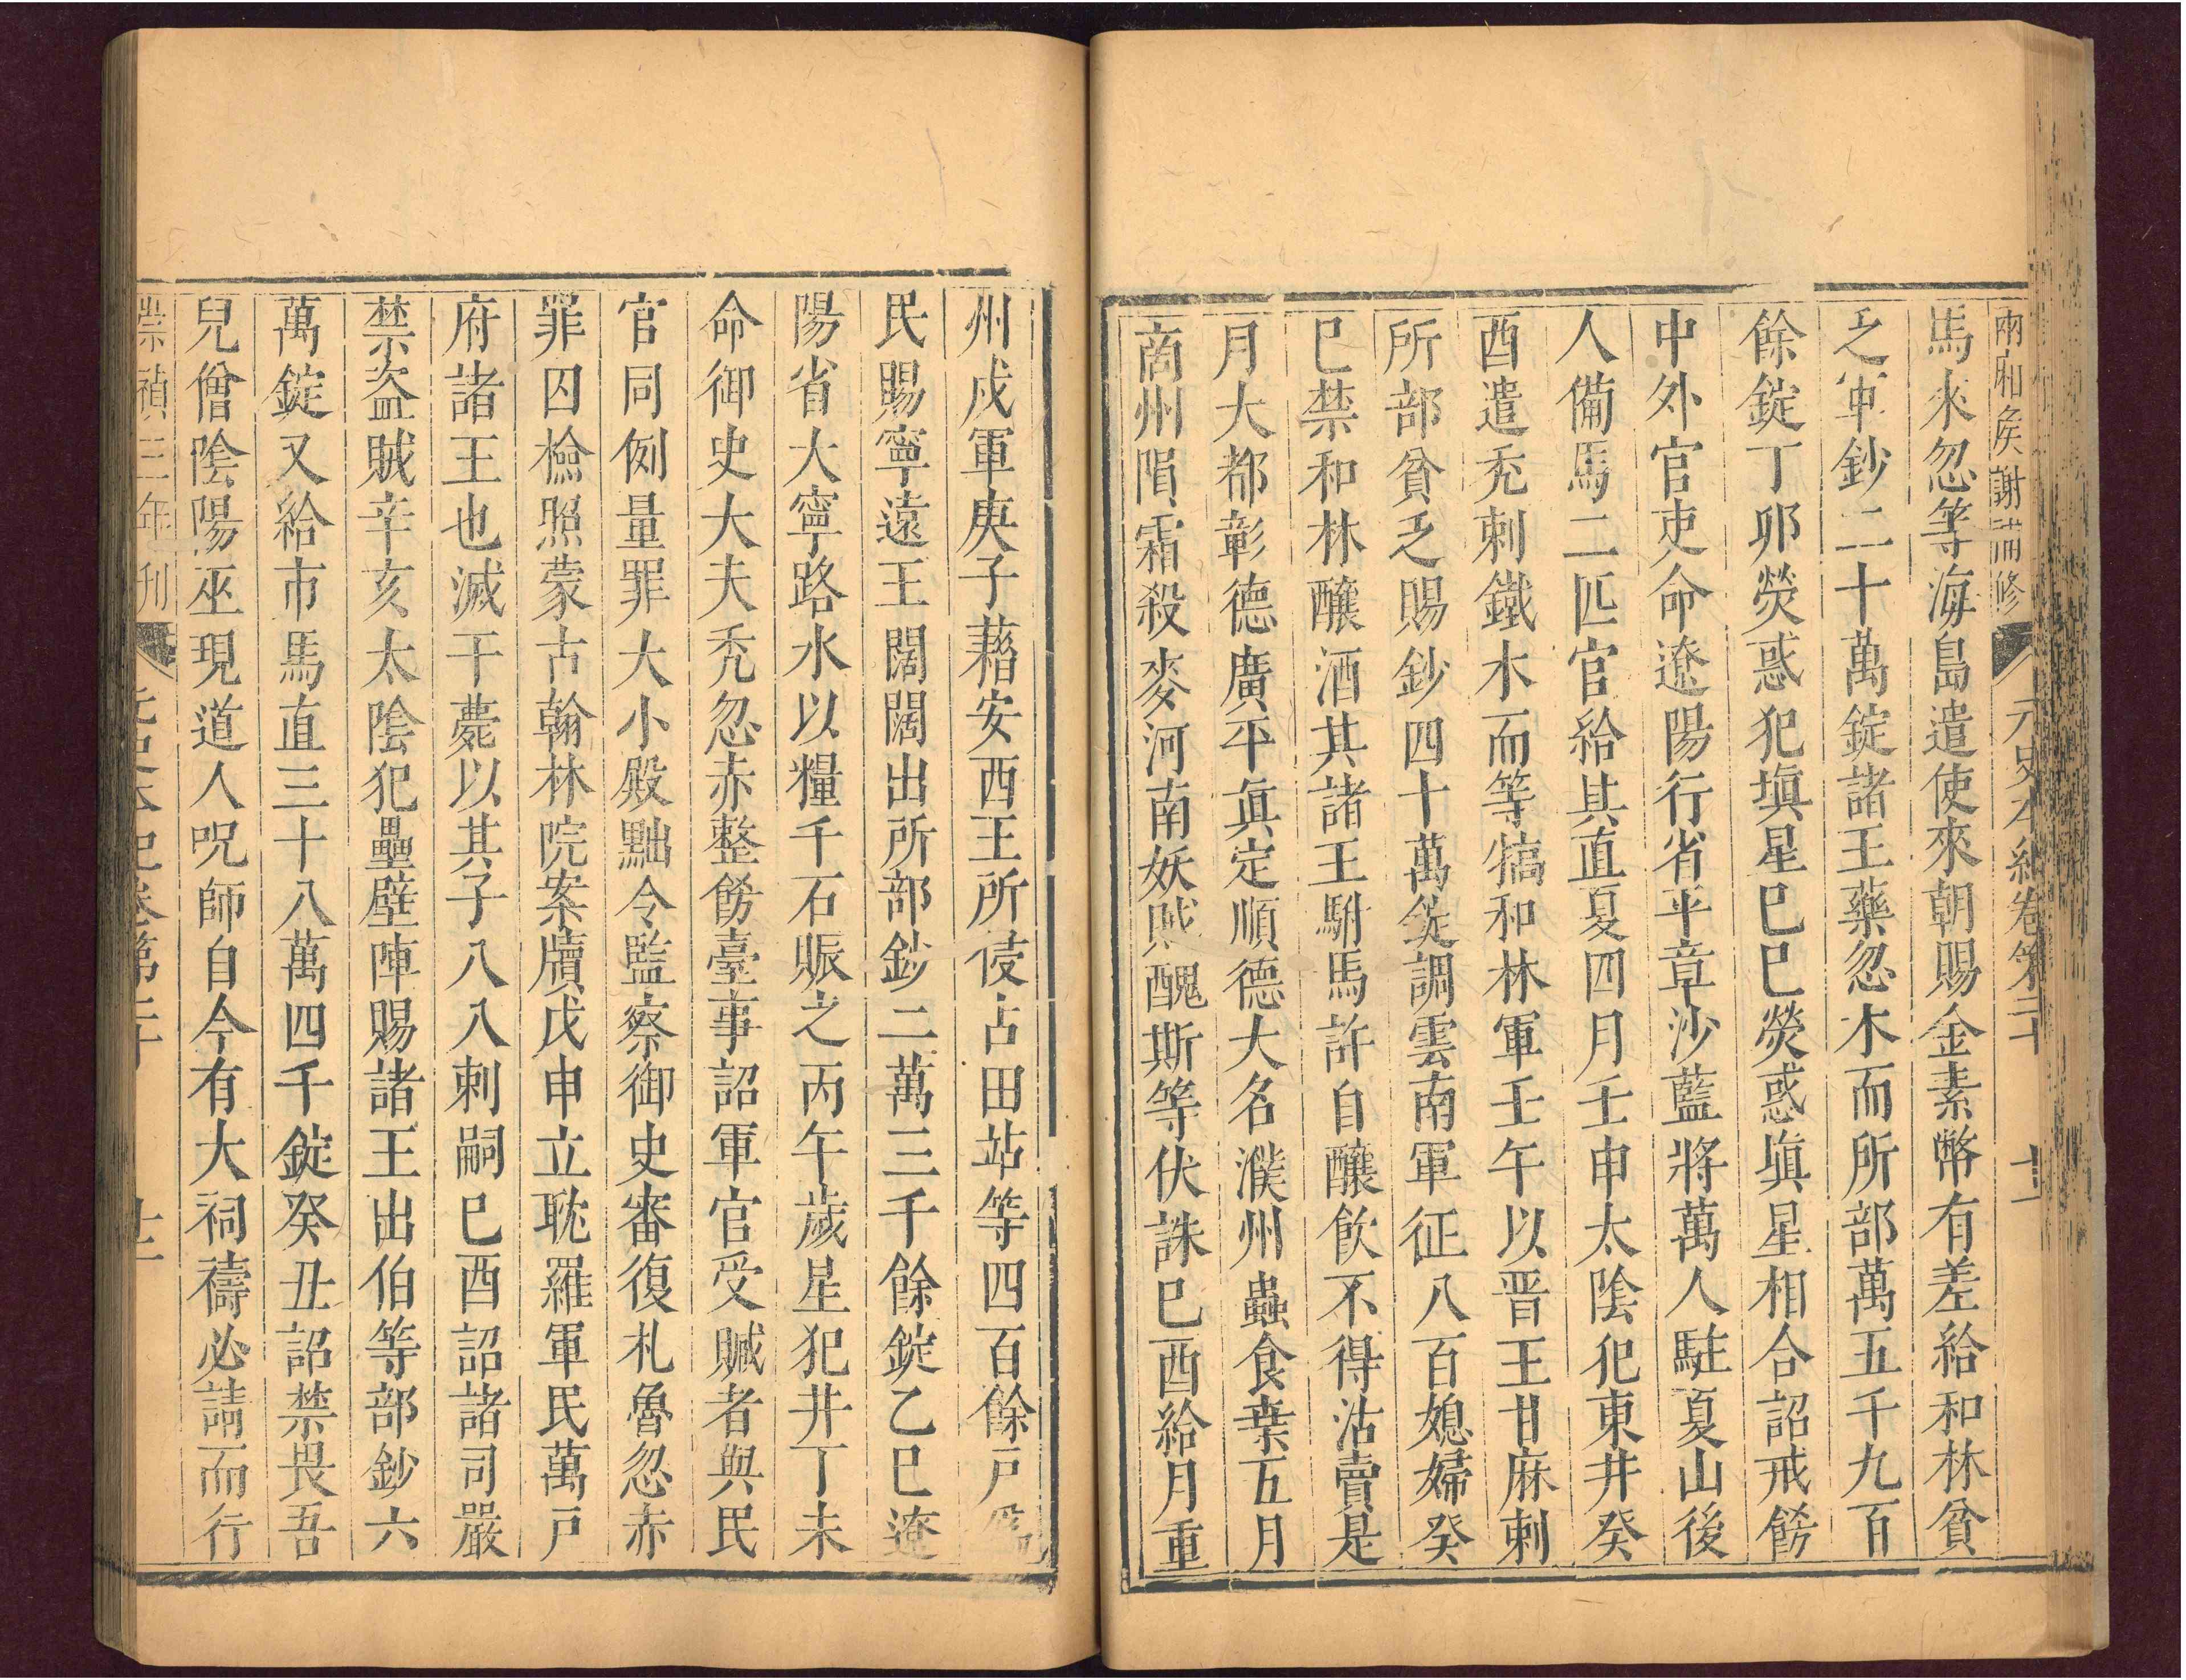 馬來忽等海島遣使來朝賜金素幣有差給和林貧
乏軍鈔二十萬錠諸王藥忽木而所部萬五千九百
餘錠丁卯熒惑犯塡星巳巳熒惑塡星相合詔戒飭
中外官吏命遼陽行省平章沙藍將萬人駐夏山後
人備馬二匹官給其直夏四月壬申太陰犯東井癸
酉遣禿剌鐵木而等犒和林軍壬午以晋王甘麻剌
所部貧乏賜鈔四十萬錠調雲南軍征八百媳婦癸
巳禁和林釀酒其諸王駙馬許自釀飲不得沽賣是
月大都彰德廣平眞定順德大名濮州蟲食桑五月
商州隕霜殺麥河南妖賊醜斯等伏誅巳酉給月重
州戍軍庚子藉安西王所侵占田站等四百餘戸爲
民賜寧遠王闊闊出所部鈔二萬三千餘錠乙巳遼
陽省大寧路水以糧千石賑之丙午歲星犯井丁未
命御史大夫禿忽赤整飭臺事詔軍官受贓者與民
官同例量罪大小殿黜令監察御史審復札魯忽赤
罪囚檢照蒙古翰林院案牘戊申立耽羅軍民萬戸
府諸王也滅干薨以其子八八剌嗣巳酉詔諸司嚴
禁盜賊辛亥太陰犯壘壁陣賜諸王出伯等部鈔六
萬錠又給市馬直三十八萬四千錠癸丑詔禁畏吾
兒僧陰陽巫現道人呪師自今有大祠禱必請而行
崇禎三年刊 元史本紀卷第二十 十二